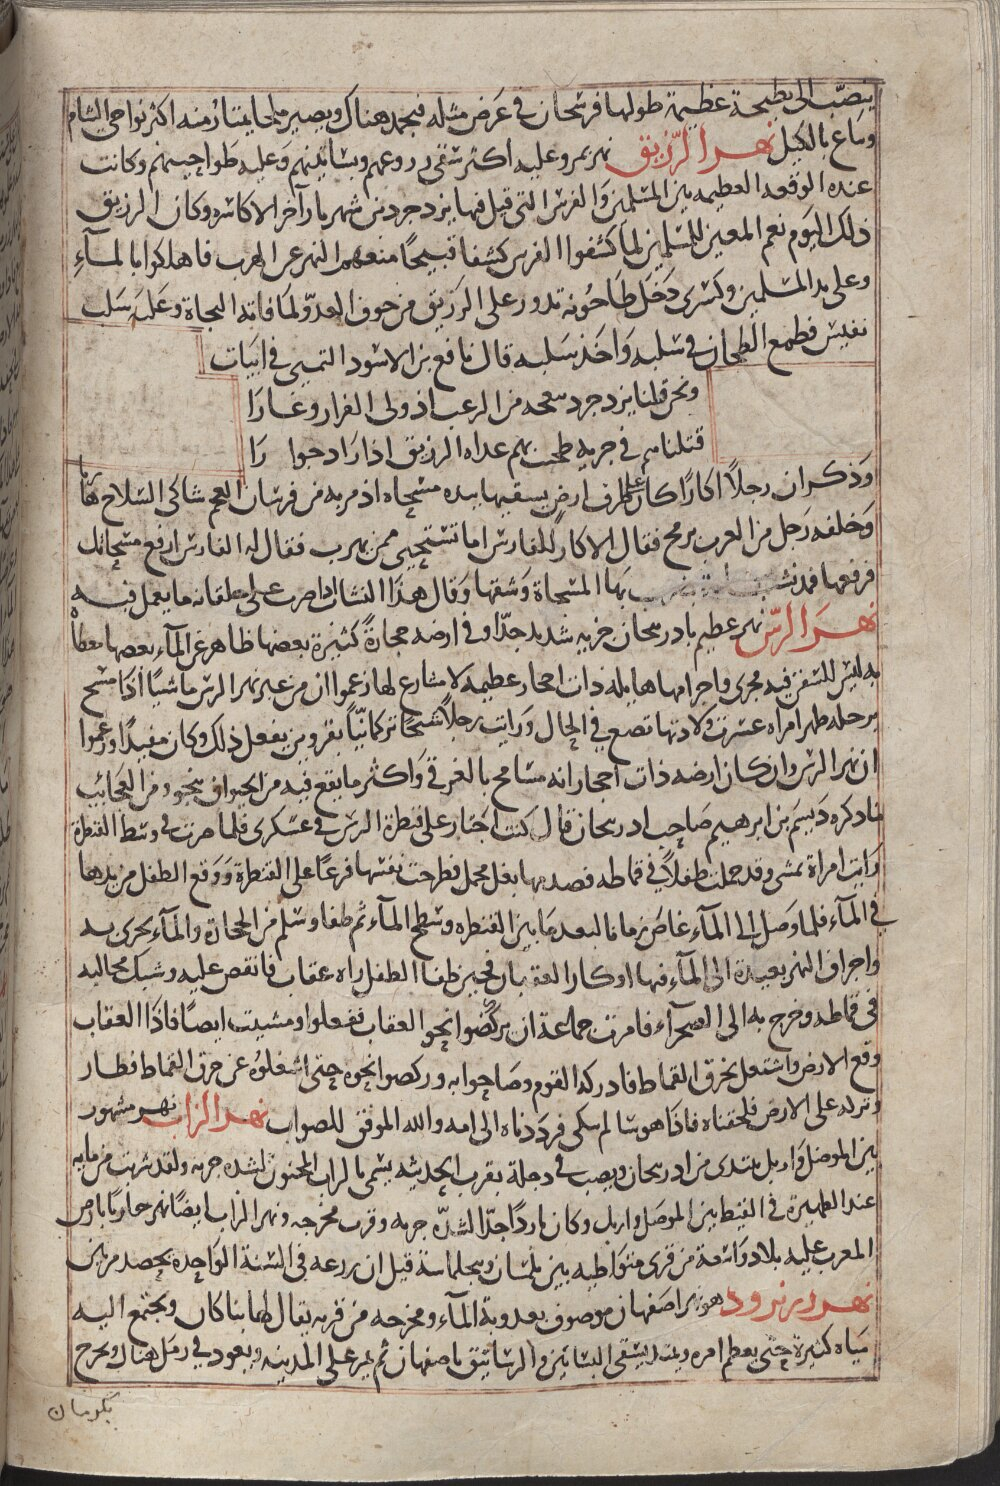 ينصبّ الى بطيحة عظيمة طولها فرسخان في عرض مثله فيجمد هناك ويصير ملحا يمتار منه اكثر نواحي الشام
وباع بالكيل نهر الرّزيق نهر بمرو عليه اكثر سقي زروعهم وبساتينهم وعليه طواحينهم وكانت
عنده الوقعه العظيمه بين المسلمين والفرس التي قتل فيها يزدجرد بن شهريار آخر الاكاسره وكان الرزيق
ذلك اليوم نعم المعين للمسلمين لما كشفوا الفرس كشفا قبيحا منعهم النهر عن الهرب فاهلكوا بالمآء
وعلى يد المسلمين وكسرى دخل طاحونه تدور على الرزيق من خوف العدوّ لما فاته النجاة وعليه سلب
نفيس فطمع الطحان في سلبه واخذ سلبه قال نافع بن الاسود التميمي في ابيات
ونحن قتلنا يزدجرد ببعجه من الرعب اذ ولى الفرار وغارا
قتلناهم في حربه طحنت بهم غداه الرزيق اذ اراد جوا را
وذكر ان رجلا اكارا كان على طرف ارض يسقيها بيده مسحاه اذ مر به من فرسان العجم شاكي السلاح هاربا
وخلفه رجل من العرب برمح فقال الاكار للفارس اما تستحيي ممن يهرب فقال له الفارس ارفع مسحاتك
فرفعها فمد نشابه بها المسحاة وشقها وقال هذا النشاب ما يعمل فيه
نهر الرسّ نهر عظيم باذربيجان جريه شديد جدّا وفي ارضه حجارة كثيرة بعضها ظاهر عن المآء بعضها مغطا
به ليس للسفن فيه مجرى واجرافها هايله ذات احجار عظيمه لا مشارع لها زعموا ان من عبر نهر الرس ماشيا اذا مسح
برجله ظهر امراه عسرت ولادتها تضع في الحال ورايت رجلا شيخا تركمانيّا بقزوين يفعل ذلك وكان مفيدا وزعموا
ان نهر الرس وان كان ارضه ذات احجار انه مسامح بالغرقى واكثر ما يقع فيه من الحيوان ينجو ومن العجائب
ما ذكره ديسم بن ابرهيم صاحب اذربيجان قال كنت اجتاز على قنطرة الرس في عسكري فلما صرت في وسط القنطرة
رايت امراة تمشي وقد حملت طفلا في قماطه فصدمها بغل محمل فطرحت نفسها فزعا على القنطرة ووقع الطفل من يدها
في المآء فلما وصل الى المآء غاص زمانا لبعد ما بين القنطره وسطح المآء ثم طفا وسلم من الحجارة والمآء يجري به
واجراف النهر بعيدة الى المآء فيها اوكار العقبان فحين طفا الطفل راه عقاب فانقض عليه وشبك مخاليبه
في قماطه وخرج به الى الصحرآء فامرت جماعة ان يركضوا نحو العقاب ففعلوا ومشيت ايضا فاذا العقاب
وقع الارض واشتغل بخرق القماط فادركه القوم وصاحوا به وركضوا نحوه حتى اشغلوه عن خرق القماط فطار
وتركه على الارض فلحقناه فاذا هو سالم يبكي فرددناه الى امه والله الموفق للصواب نهر الزاب نهر مشهور
بين الموصل واربل يبتدي من اذربيجان ويصب في دجلة بقرب الحديثه يسمى بالزاب المجنون لشده جريه ولقد شربت من مايه
عند الظهيرة في القيظ بين الموصل واربل وكان باردا جدّا لشدّه جريه وقرب مخرجه ونهر الزاب ايضا نهر جار بارض
المغرب عليه بلاد واسعة من قرى متواطيه بين تلمسان وسجلماسة قيل ان زرعه في السنة الواحده يحصد مرتين
نهر زرنرود هو نهر اصفهان موصوف بعذوبة المآء ومخرجه من قرية يقال لها بناكان ويجتمع اليه
مياه كثيرة حتى يعظم امره ويمتد يسقي البساتين والرساتيق باصفهان ثم يمر على المدينه ويعود في رمل هناك ويخرج
بكرمان